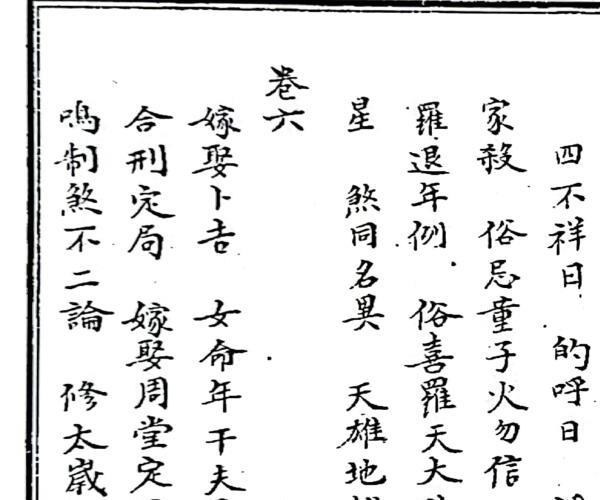 四不祥日 的呼日
家殺 俗忌童子火勿信
羅退年例 俗喜羅天大
星 煞同名異 天雄地
卷六
嫁娶卜吉 女命年干夫
合刑定局 嫁娶周堂定
鳴制煞不二論 修太歲